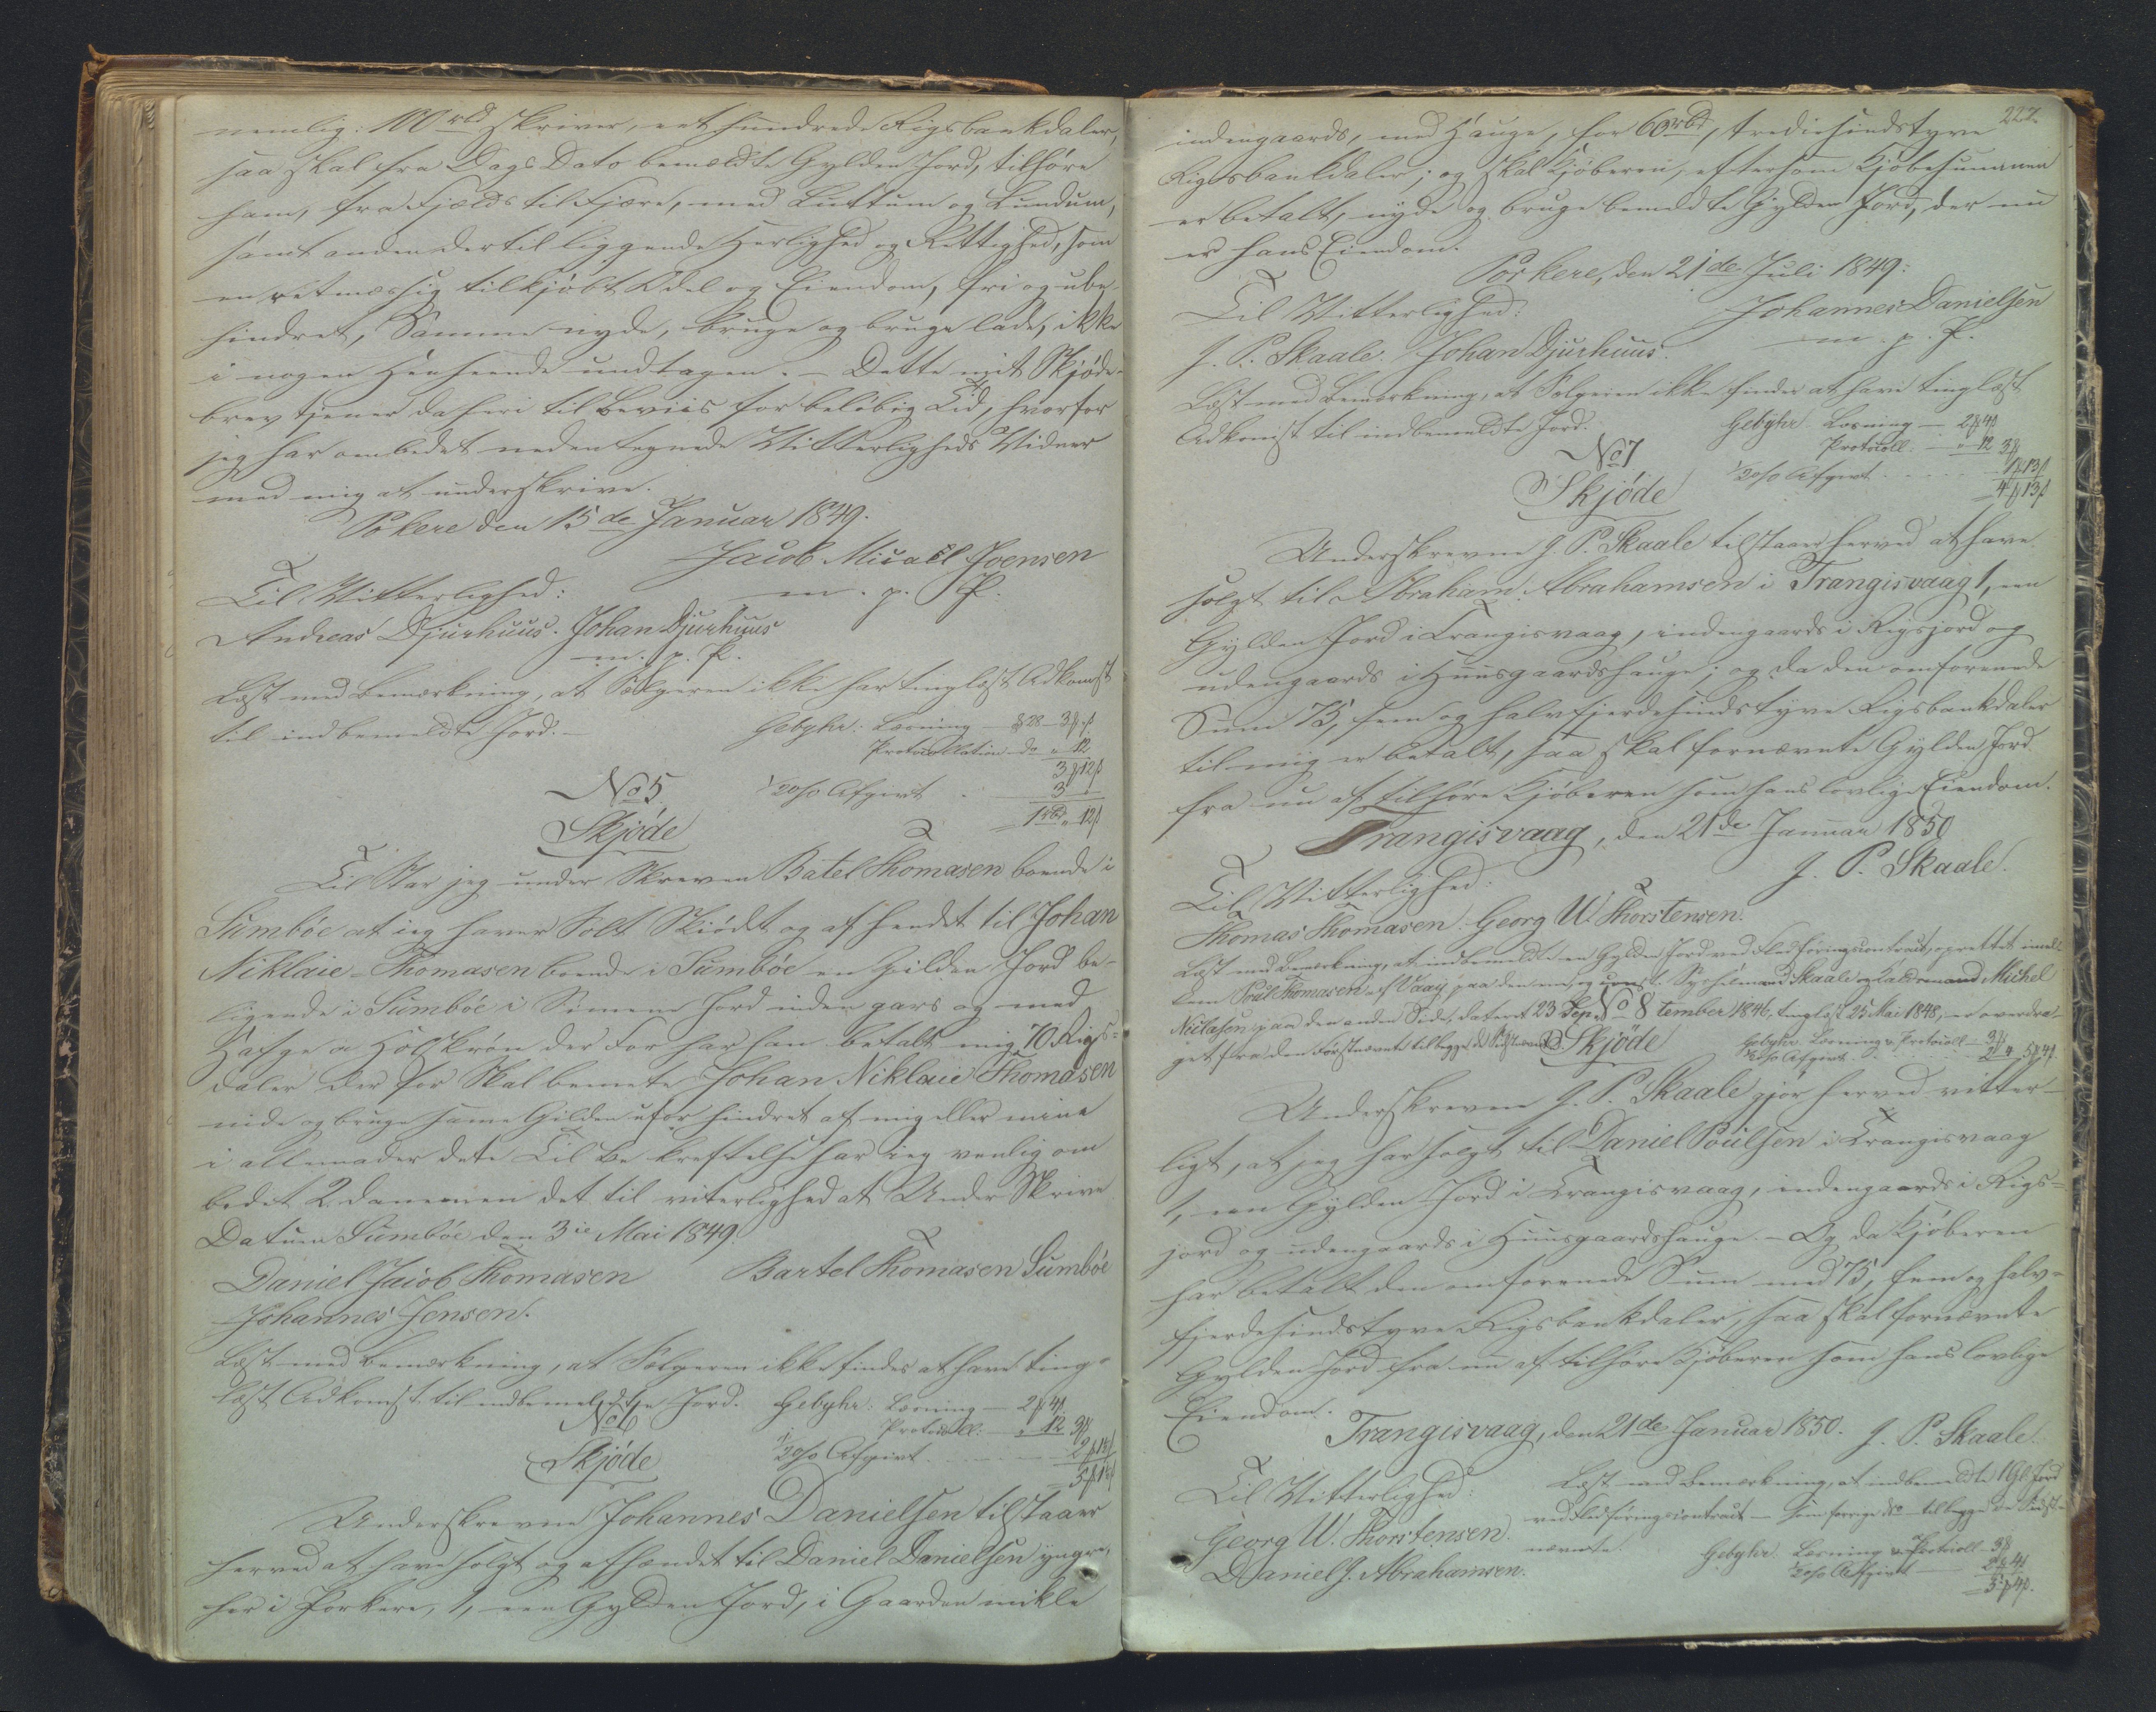 nemlig: 100 rbd skriver, eet hundrede Rigsbankdaler,
saa skal fra Dags Dato bemældte Gylden Jord, tilhøre
ham, fra Fjælds til Fjære, med Luttum og Lundum,
samt anden dertil liggende Herlighed og Rettighed, som
en retmæssig tilkjøbt Odel og Eiendom, fri og ube-
hindret, Samme nyde, bruge og bruge lade, ikke
i nogen Henseende undtagen. – Dette mit Skjøde-
brev tjener da heri til Beviis for beløbig Tid, hvorfor
jeg har ombedet nedentegnede Vitterligheds Vidner
med mig at underskrive.
Pokere den 15de Januar 1849.
Jacob Micall Joensen
Til Vitterlighed: m. p. P.
Andreas Djurhuus. Johan Djurhuus
m. p. P.
Læst med Bemærkning, at Sælgeren ikke har tinglæst Adkomst
til indbemeldte Jord. – Gebyhr: Læsning – 3
Protocollation – do " 12
3 12
No 5 1/2 o/o Afgivt 3
Skjøde 1 rbd " 12
Til Star jeg under Skreven Batel Thomasen boende i
Sumbøe at ieg haver Solt Skiødet og af hendet til Johan
Niklaie Thomasen boende i Sumbøe en Gilden Jord be-
ligende i Sumbøe i Simens Jord inden gars og med
Hafge a Holskrøn der for har han betalt mig 70 Rigs-
daler der for Skal bemete Johan Niklaie Thomasen
nide og bruge samme Gilden ufor hindret af mig eller mine
i allemader dete Til Be kreftelse har ieg venlig om
bedet 2 danemen det til viterlighed at Under Skrive
Datum Sumbøe den 3ie Mai 1849.
Daniel Jacob Thomasen Bartel Thomasen Sumbøe
Johannes Jensen.
Læst med Bemærkning, at Sælgeren ikke findes at have ting-
læst Adkomst til indbemeldte Jord. Gebyhr: Læsning – 2 4
No 6 Protocoll. – " 12 3
Skjøde 1/2 o/o Afgivt
Underskrevne Johannes Danielsen tilstaaer
herved at have solgt og afhændet til Daniel Danielsen yngre,
her i Porkere, 1, een Gylden Jord, i Gaarden mikle
227.
indengaards, med Hauge, for 60 rbd, trediesindstyve
Rigsbankdaler; og skal Kjøberen, eftersom Kjøbesummen
er betalt, nyde og bruge bemeldte Gylden Jord, der nu
er hans Eiendom.
Porkere, den 21de Juli 1849:
Til Vitterlighed: Johannes Danielsen
J. P. Skaale. Johan Djurhuus. m. p. P.
Læst med Bemærkning, at Sælgeren ikke findes at have tinglæst
Adkomst til indbemeldte Jord. Gebyhr Læsning – 2 4
Protocoll. – " 12 3
No 7 1/2 o/o Afgivt 1 13
Skjøde 4 13
Underskrevne J. P. Skaale tilstaaer herved at have
solgt til Abraham Abrahamsen i Trangisvaag 1, een
Gylden Jord i Trangisvaag, indengaards i Rigsjord og
udengaards i Huusgaardshauge; og da den omforenede
Sum 75, fem og halvfjerdesindstyve Rigsbankdaler
til mig er betalt, saa skal fornævnte Gylden Jord
fra nu af tilhøre Kjøberen som hans lovlige Eiendom.
Trangisvaag, den 21de Januar 1850
Til Vitterlighed: J. P. Skaale.
Thomas Thomasen. Georg W. Thorstensen.
Læst med Bemærkning, at indbemeldte en Gylden Jord ved Fledføringscontract, oprettet imel-
lem Poul Thomasen af Vaag paa den ene, og const. Sysselmand Skaale og Michel
Niclasen paa den anden Side, dateret 23 September 1846, tinglæst 25 Mai 1848, er overdra-
get fra den Førstnævnte til begge de Sidstnævnte.
No 8
Skjøde Gebyhr Læsning & Protocoll – 3
1/2 o/o Afgivt 2 4 5 4
Underskrevne J. P. Skaale gjør herved vitter-
ligt, at jeg har solgt til Daniel Poulsen i Trangisvaag
1, een Gylden Jord i Trangisvaag, indengaards i Rigs-
jord og udengaards i Huusgaardshauge. – Og da Kjøberen
har betalt den omforenede Sum med 75, fem og halv-
fjerdesindstyve Rigsbankdaler, saa skal fornævnte
Gylden Jord fra nu af tilhøre Kjøberen som hans lovlige
Eiendom.
Trangisvaag, den 21de Januar 1850. J. P. Skaale.
Til Vitterlighed: Læst med Bemærkning, at indbemeldte 1 Gl. Jord
Georg W. Thorstensen. ved Fledføringscontract – som forrige No – til begge de Sidst-
Daniel J. Abrahamsen. nævnte. Gebyhr Læsning & Protocoll – 3
1/2 o/o Afgivt 2 4
5 4